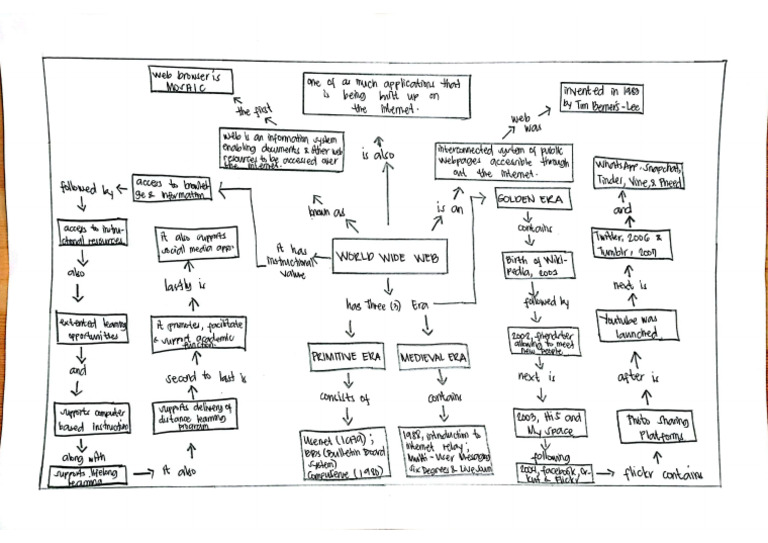 web browser is
MOSAIC
the first
web is an information system
enabling documents & other web
resources to be accessed over
the internet.
known as
one of as much applications that
is being built up on
the internet.
is also
invented in 1989
by Tim Berners-Lee
web
was
interconnected system of public
webpages accesible through
out the internet.
is an
WORLD WIDE WEB
it has
instructional
value
access to knowled
ge & information
followed by
access to instru-
ctional resources
also
extented learning
opportunities
and
supports computer
based instruction
along with
supports lifelong
learning
it also
supports delivery of
distance learning
program
second to last is
it promotes, facilitate
& support academic
function.
lastly is
it also supports
social media app.
has three (3) Era
PRIMITIVE ERA
consists of
Usenet (1979);
BBS (Bulletin Board
System)
CompuServe (1980)
MEDIEVAL ERA
contains
1988, introduction to
internet relay;
Multi-User Messaging
Six Degrees & LiveJournal
GOLDEN ERA
contains
Birth of Wiki-
pedia, 2001
followed by
2002, friendster
allowing to meet
new people.
next is
2003, Hi5 and
My space
following
2004, facebook, Or-
kut & Flickr
flickr contains
Photo Sharing
Platforms
after is
Youtube was
launched
next is
Twitter, 2006 &
Tumblr, 2007
and
WhatsApp, Snapchat,
Tinder, Vine, & Pheed